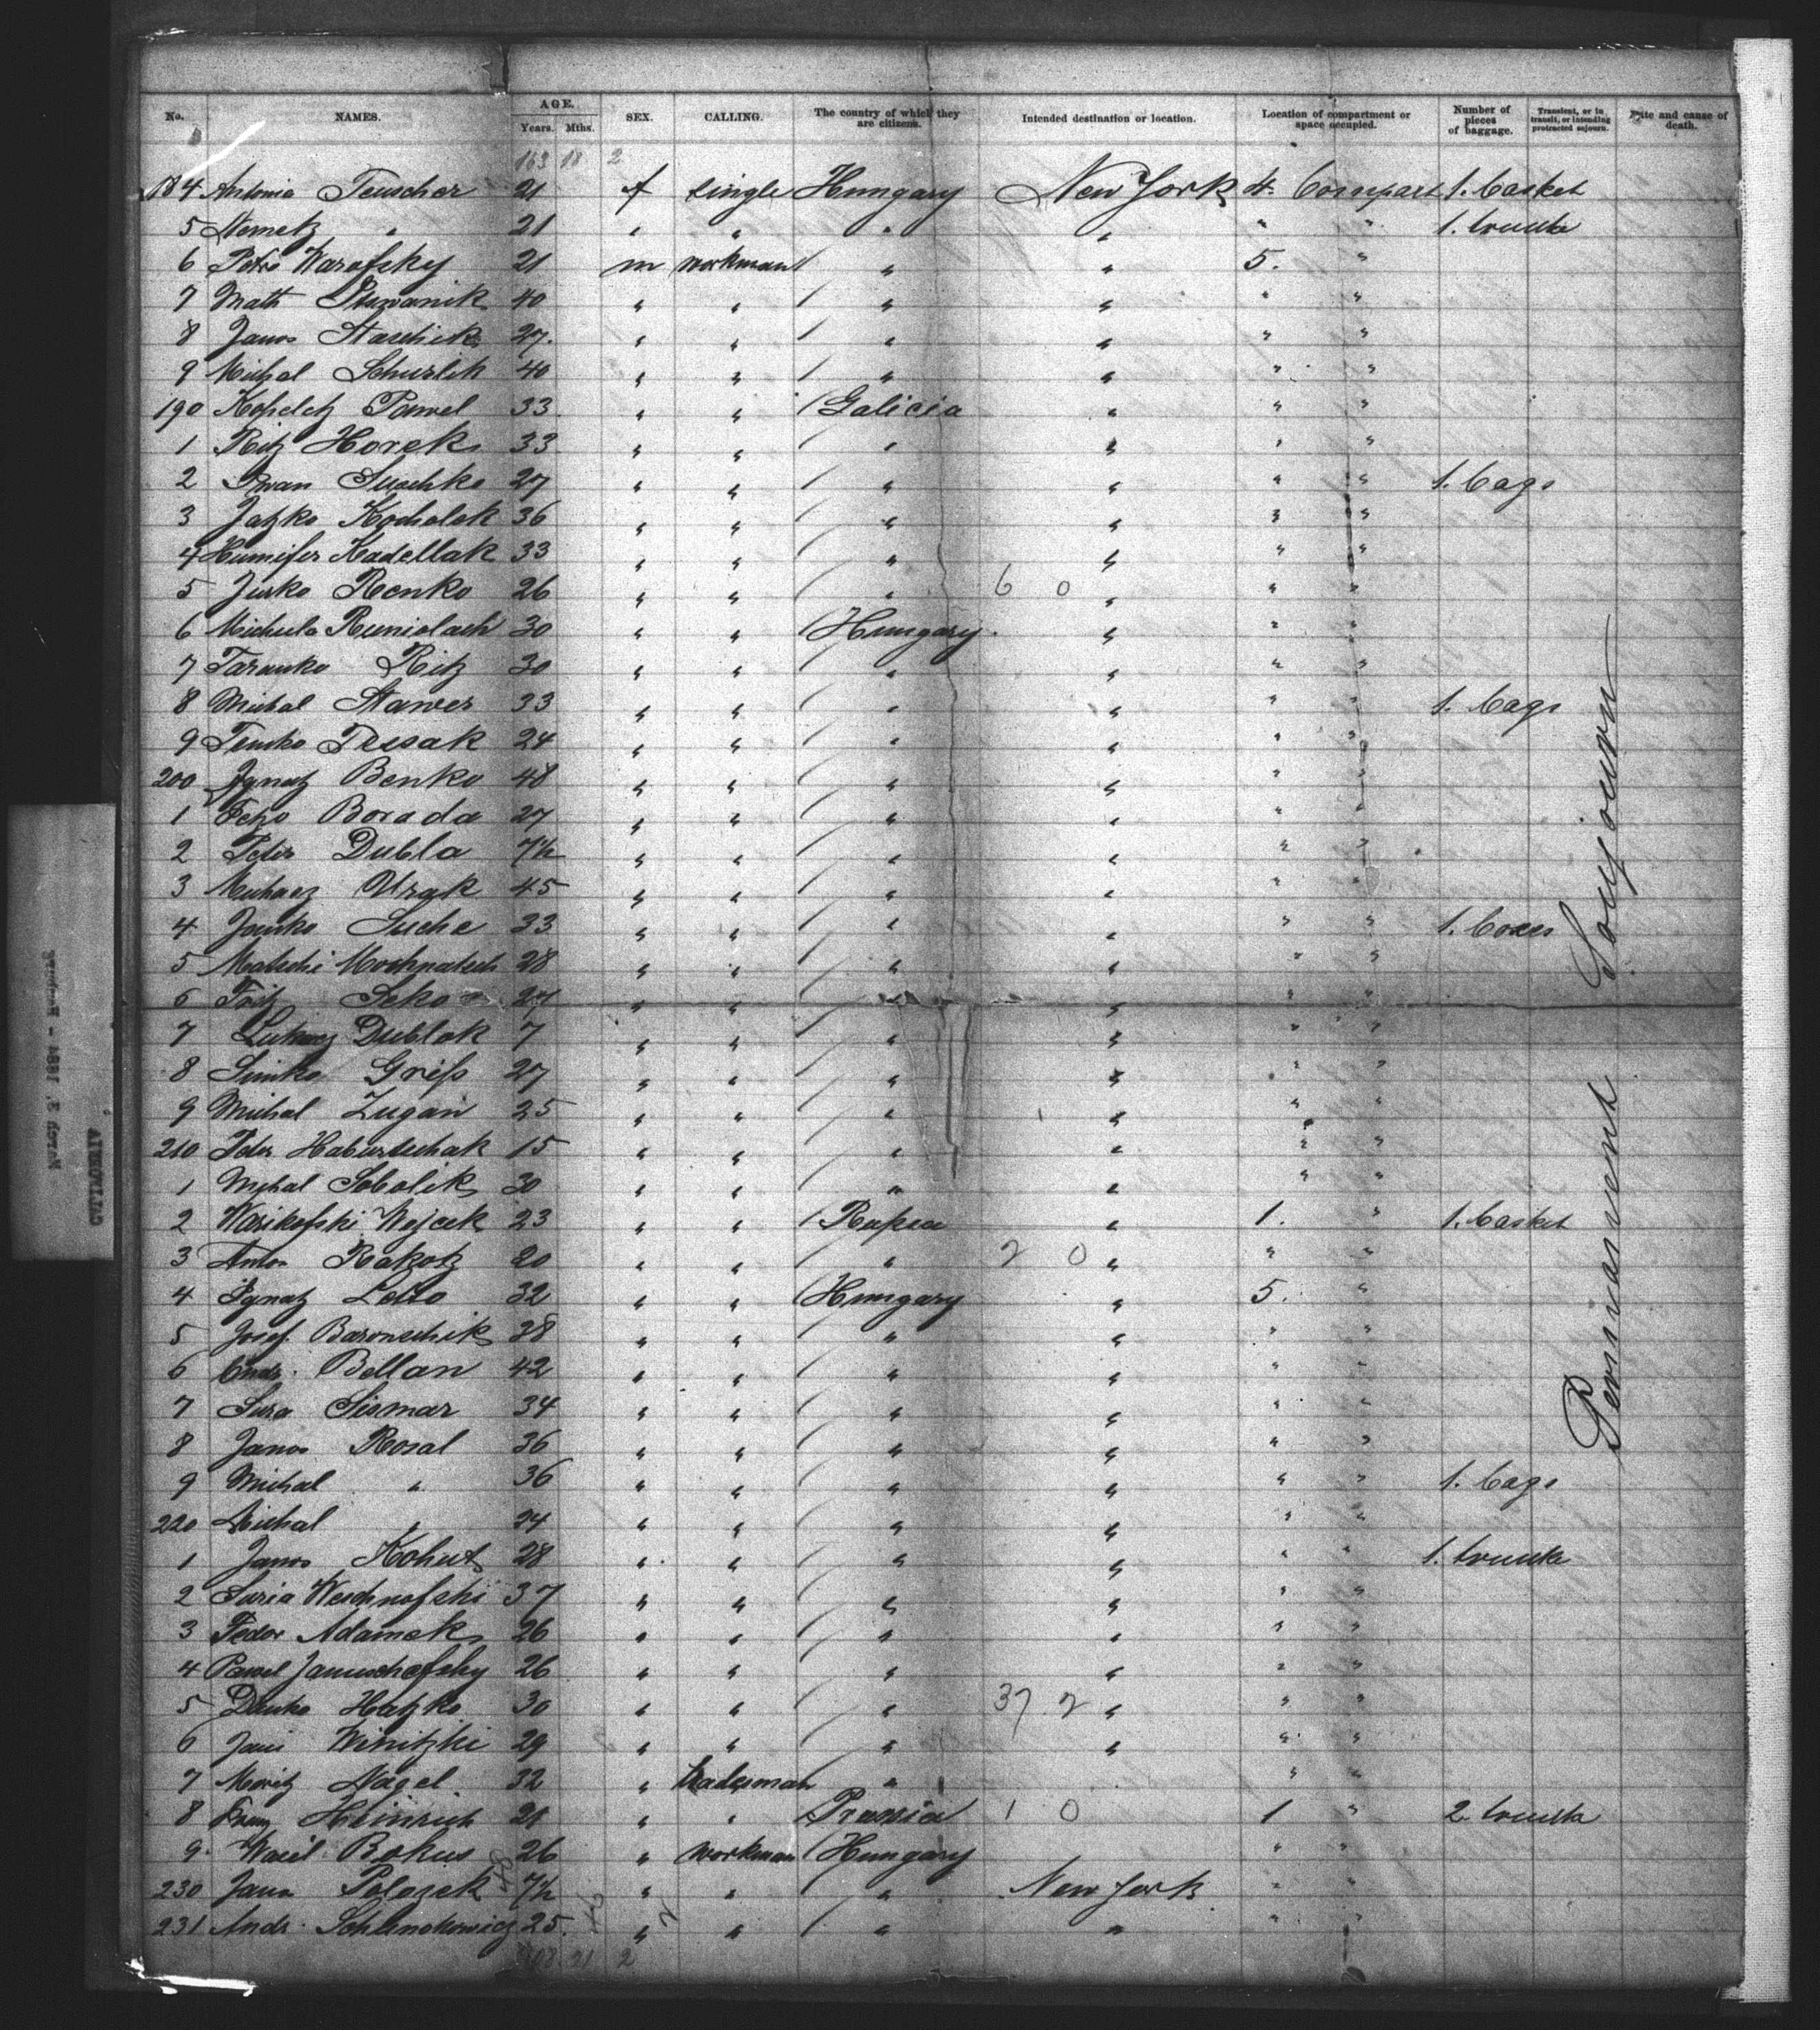 No. NAMES. AGE. Years. Mths. SEX. CALLING. The country of which they are citizens. Intended destination or location. Location of compartment or space occupied. Number of pieces of baggage. Transient, or in transit, or intending protracted sojourn. Date and cause of death.
163 18 2
184 Antonia Teuscher 21 f single Hungary New York 4. Compart 1. basket
5 Nemetz " 21 " " " " " " 1. trunk
6 Petro Warofsky 21 m workman " " 5. "
7 Math 40 " " " " " "
8 Janos 27. " " " " " "
9 Michal Schurlik 40 " " " " " "
190 Kopeletz Pawel 33 " " Galicia " " "
1 Ritz Horek 33 " " " " " "
2 Iwan Suschko 27 " " " " " " 1. bags
3 Jatzko Kocholek 36 " " " " " "
4 Kadellak 33 " " " " " "
5 Jurko Renko 26 " " " 6 0 " " "
6 30 " " Hungary " " "
7 Taranko Ritz 30 " " " " " "
8 Michal Stawer 33 " " " " " " 1. bags
9 Timko Tessak 24 " " " " " "
200 Ignatz Benko 48 " " " " " "
1 Fetzo Borada 27 " " " " " "
2 Peter Dubla 7½ " " " " " "
3 Urak 45 " " " " " "
4 Janko Suche 33 " " " " " " 1. boxes
5 28 " " " " " "
6 Fritz Seko 27 " " " " " "
7 Dublok 7 " " " " " "
8 Simko Grifs 27 " " " " " "
9 Michal Zugan 25 " " " " " "
210 Peter Haburtschak 15 " " " " " "
1 Michal Sobolik 30 " " " " " "
2 Warikofski Wojcek 23 " " Rufsia " 1. " 1. basket
3 Anton Rakotz 20 " " " 2 0 " " "
4 Ignatz 32 " " Hungary " 5. "
5 Josef Baronschik 38 " " " " " "
6 Andr. Bellan 42 " " " " " "
7 Sura Sismar 34 " " " " " "
8 Janos Rosal 36 " " " " " "
9 Michal " 36 " " " " " " 1. bags
220 Michal " 34 " " " " " "
1 Janos Kohut 28 " " " " " " 1. trunk
2 Suria Weschnofski 37 " " " " " "
3 Fedor Adamek 26 " " " " " "
4 Pawel Januschofsky 26 " " " " " "
5 Danko Hatzko 30 " " " 37 2 " " "
6 Jani Winitzki 29 " " " " " "
7 Moritz Nagel 32 " tradesman " " "
8 Franz Heinrich 21 " " Prussia 1 0 1 " 2 trunk
9 Wasil Bokus 26 " workman Hungary " "
230 Jano Polozek 7½ " " " New York " "
231 Andr. 25. " " " " " "
21 2
Sonjourn
Permanent
46
2
CALIFORNIA
March 3, 1884 - Hamburg